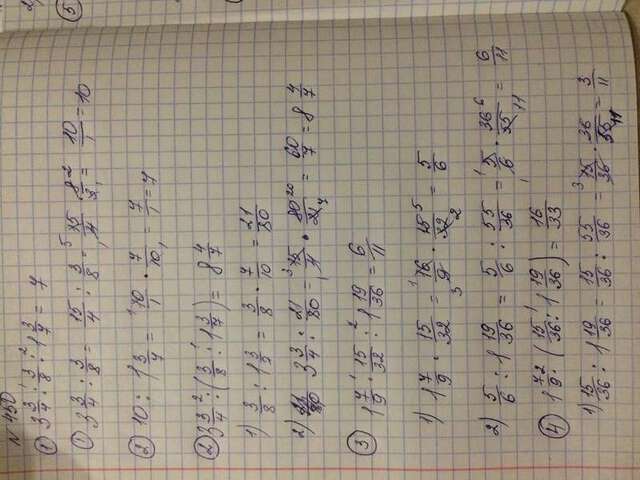 № 450
① 3 3/4 : 3/8 : 1 3/7 = 7
① 3 3/4 : 3/8 = 15/4 : 3/8 = 15/4 · 8/3 = 10/1 = 10
② 10 : 1 3/7 = 10/1 · 7/10 = 7/1 = 7
② 3 3/4 : (3/8 : 1 3/7) = 8 4/7
1) 3/8 : 1 3/7 = 3/8 · 7/10 = 21/80
2) 3 3/4 : 21/80 = 15/4 · 80/21 = 60/7 = 8 4/7
③ 1 7/9 · 15/32 : 1 19/36 = 6/11
1) 1 7/9 · 15/32 = 16/9 · 15/32 = 5/6
2) 5/6 : 1 19/36 = 5/6 : 55/36 = 5/6 · 36/55 = 6/11
④ 1 7/9 · (15/36 : 1 19/36) = 16/33
1) 15/36 : 1 19/36 = 15/36 : 55/36 = 15/36 · 36/55 = 3/11
2)
⑤